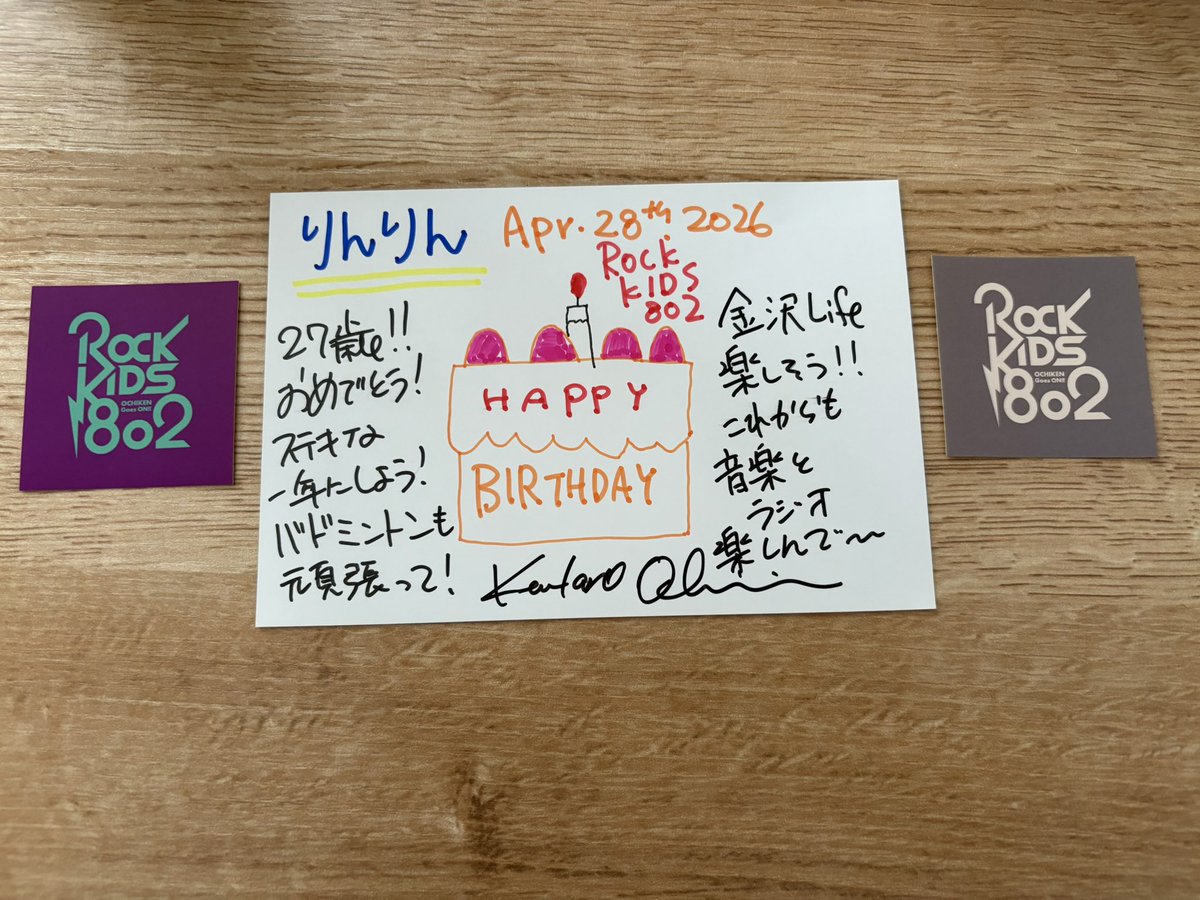 りんりん
Apr. 28th. 2026
ROCK
KIDS
802
27歳!!
おめでとう!
ステキな
一年にしよう!
バドミントンも
頑張って!
HAPPY
BIRTHDAY
金沢Life
楽しそう!!
これからも
音楽と
ラジオ
楽しんで〜
Kentaro
ROCK
KIDS
OCHIKEN
Goes ON!!
802
ROCK
KIDS
OCHIKEN
Goes ON!!
802